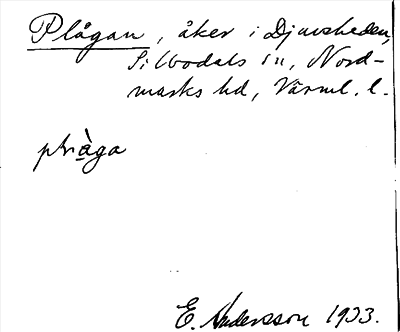 Plågan, åker i Djuvsheden,
Silbodals sn, Nord-
marks hd, Värml. l.
plràga
E. Andersson 1933.